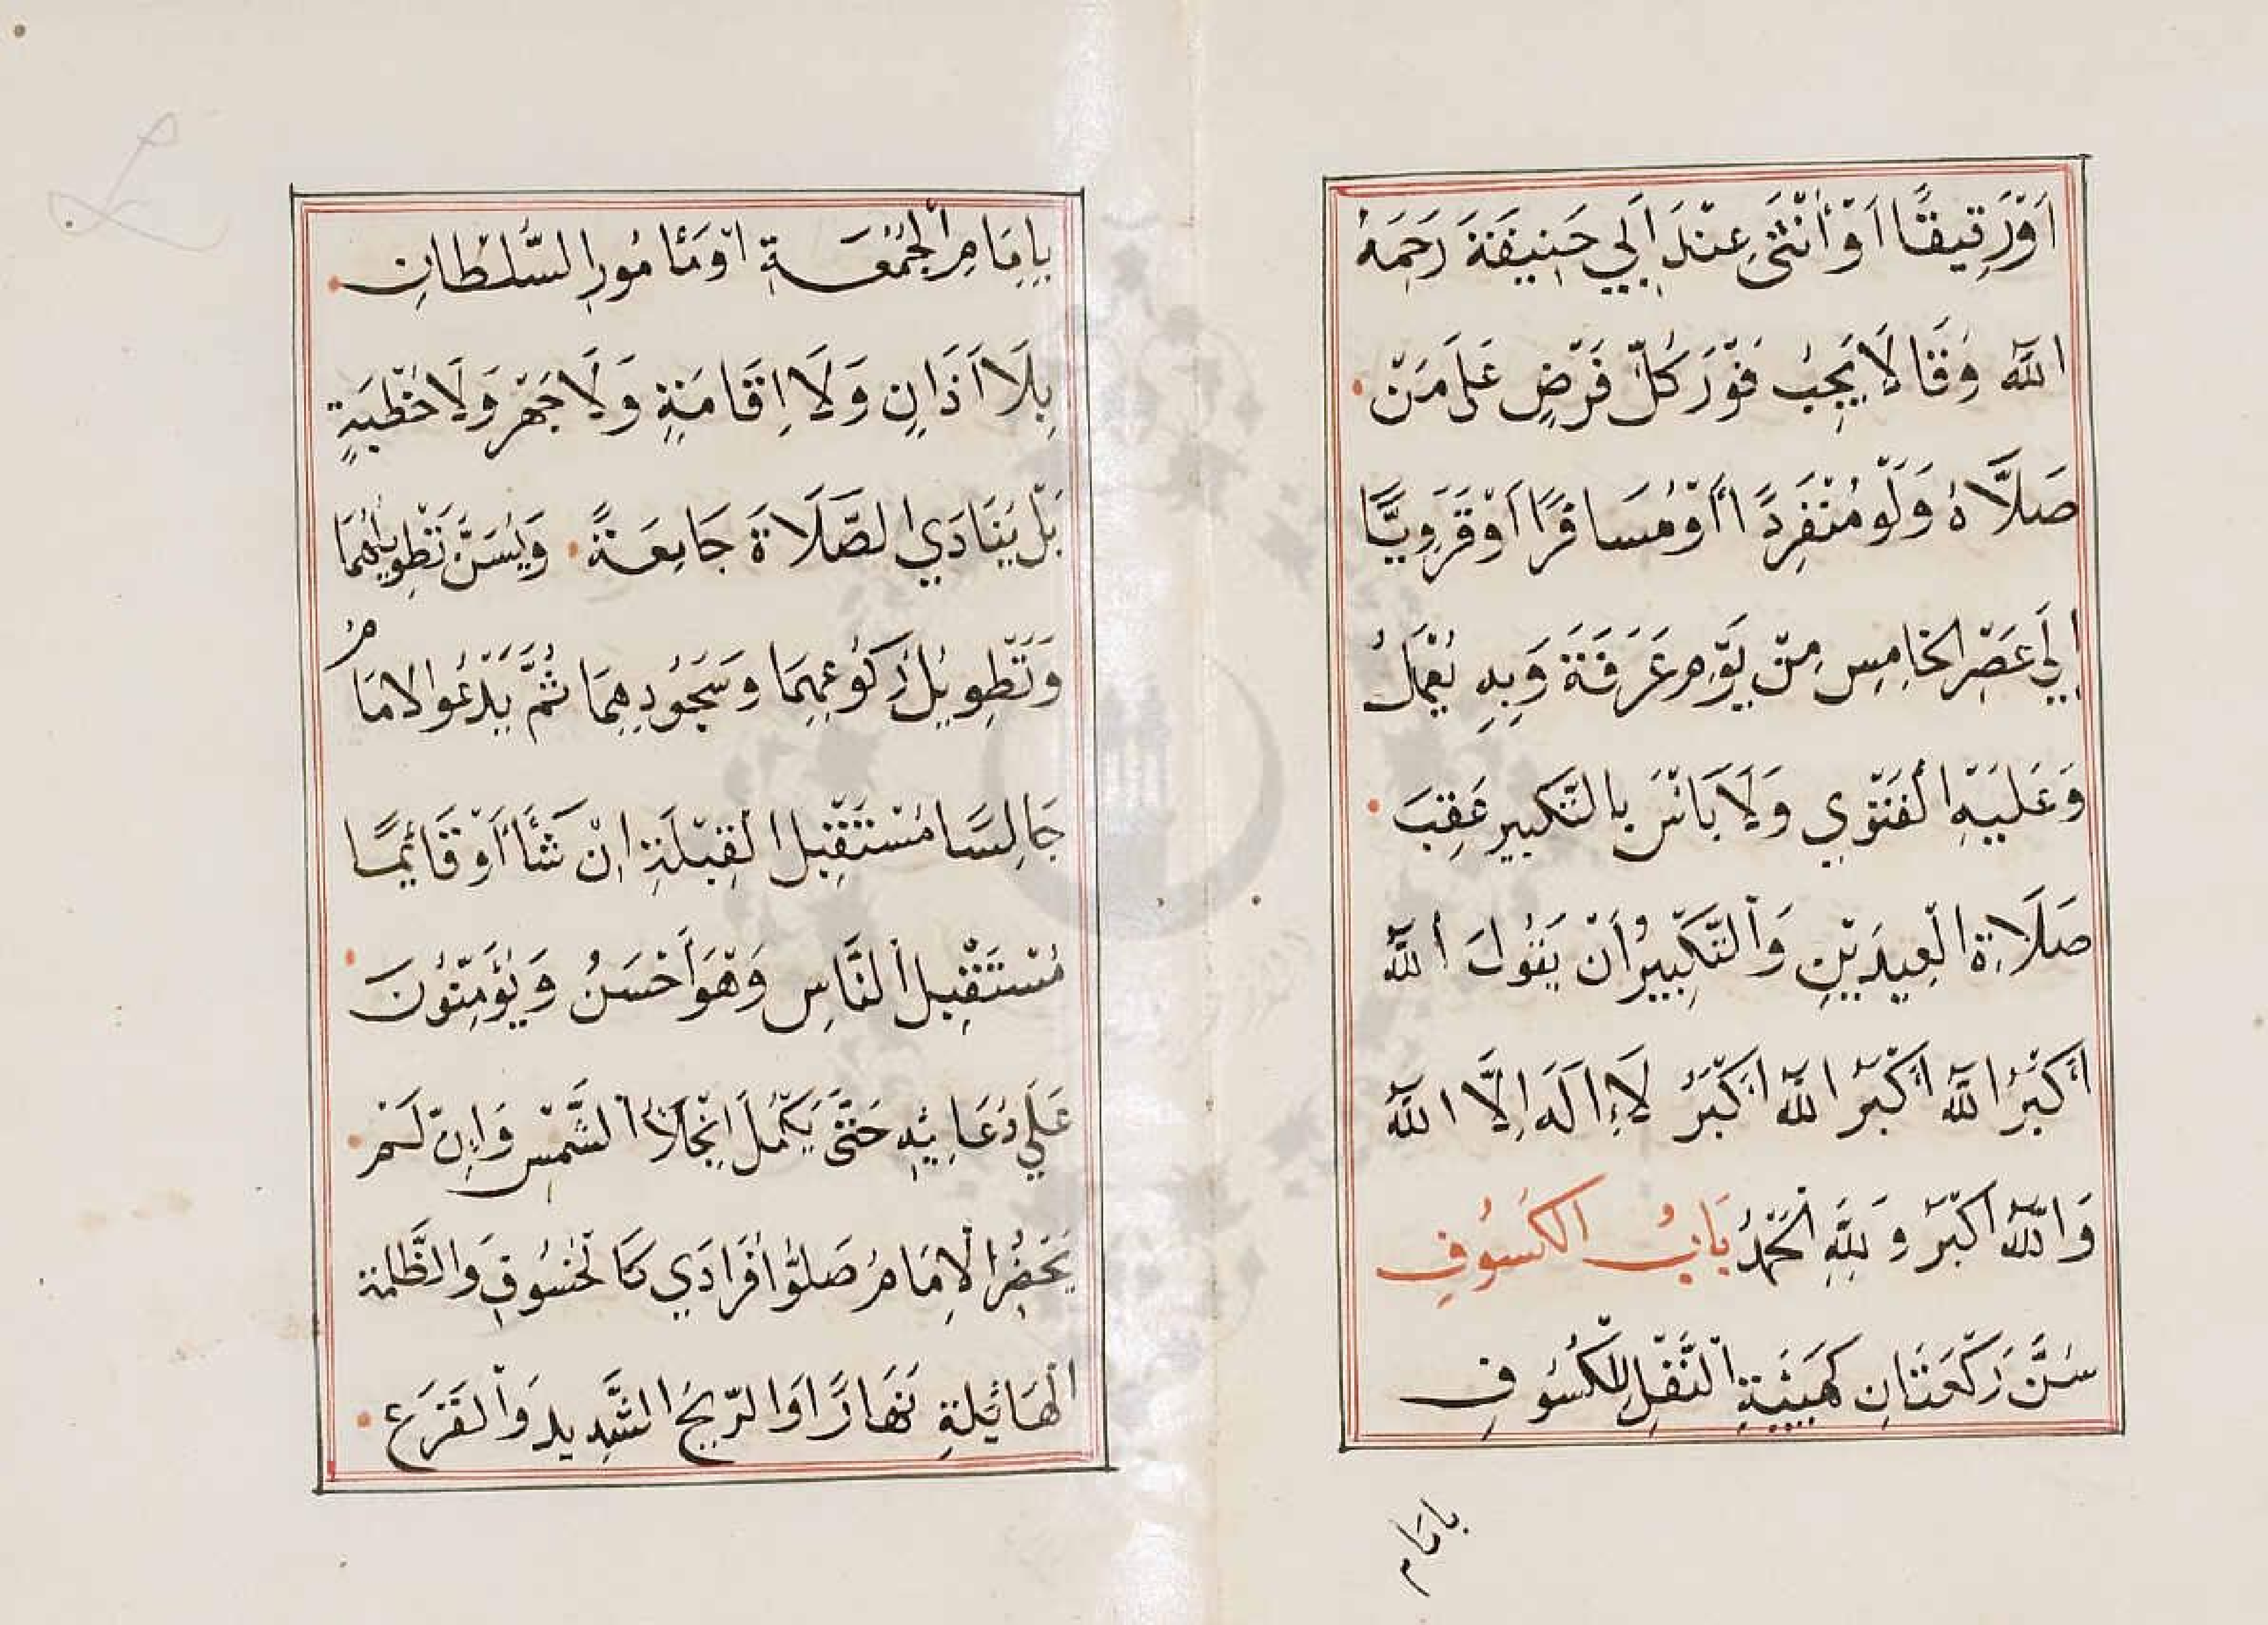 اَوْ رَقِيقًا اَوْ أُنْثَى عِنْدَ اَبِي حَنِيفَةَ رَحِمَهُ
الله وَقَالَا يَجِبُ فَوْرَ كُلِّ فَرْضٍ عَلَى مَنْ
صَلَّاهُ وَلَوْ مُنْفَرِدًا أَوْ مُسَافِرًا اَوْ قَرَوِيًّا
اِلَي عَصْرِ الخَامِسِ مِنْ يَوْمِ عَرَفَةَ وَبِهِ يُعْمَلُ
وَعَلَيْهِ الْفَتْوي وَلَا بَاْسَ بِالتَّكْبِيرِ عَقِبَ
صَلَاةِ الْعِيدَيْنِ وَالْتَّكْبِيرُ اَنْ يَقُولَ أللّٰه
اَكْبَرُ اللّٰه اَكْبَر اللّٰه اَكْبَرُ لَا اِلَهَ اِلَّا اللّٰه
وَاللّٰه اَكْبَرُ وَلِلَّهِ الْحَمْدُ بَابُ الكُسُوفِ
سُنَّ رَكْعَتَانِ كَهَيْئَةِ الْنَّفْلِ لِلْكُسُوفِ
بامام
بِاِمَامِ الْجُمُعَةِ اَوْ مَأمُورِ السُّلْطَانِ
بِلَا اَذَانٍ وَلَا اِقَامَةٍ وَلَا جَهْرٍ وَلَا خُطْبَةٍ
بَلْ يُنَادَي الصَّلَاةَ جَامِعَةً وَيُسَنُّ تَطْوِيلُهُمَا
وَتَطْوِيلُ رُكُوعِهِمَا وَسُجُودِهِمَا ثُمَّ يَدْعُوا الامَامُ
جَالِسًا مُسْتَقْبِلَ الْقِبْلَةِ اِنْ شَأَ أَوْ قَائِمًا
مُسْتَقْبِلَ الْنَّاسِ وَهْوَ اَحْسَنُ وَيُؤَمِّنُونَ
عَلَي دُعَائِهِ حَتَّى يَكْمُلَ اِنْجِلَأُ الشَّمْسِ وَاِنْ لَمْ
يَحْضُرِ الْاِمَامُ صَلُّوا فُرَادَي كَالْخُسُوفِ وَالظُّلْمَة
الْهَائِلَةِ نَهَارًا وَالرِّيحِ الشَّدِيدِ وَالْفَزَعِ